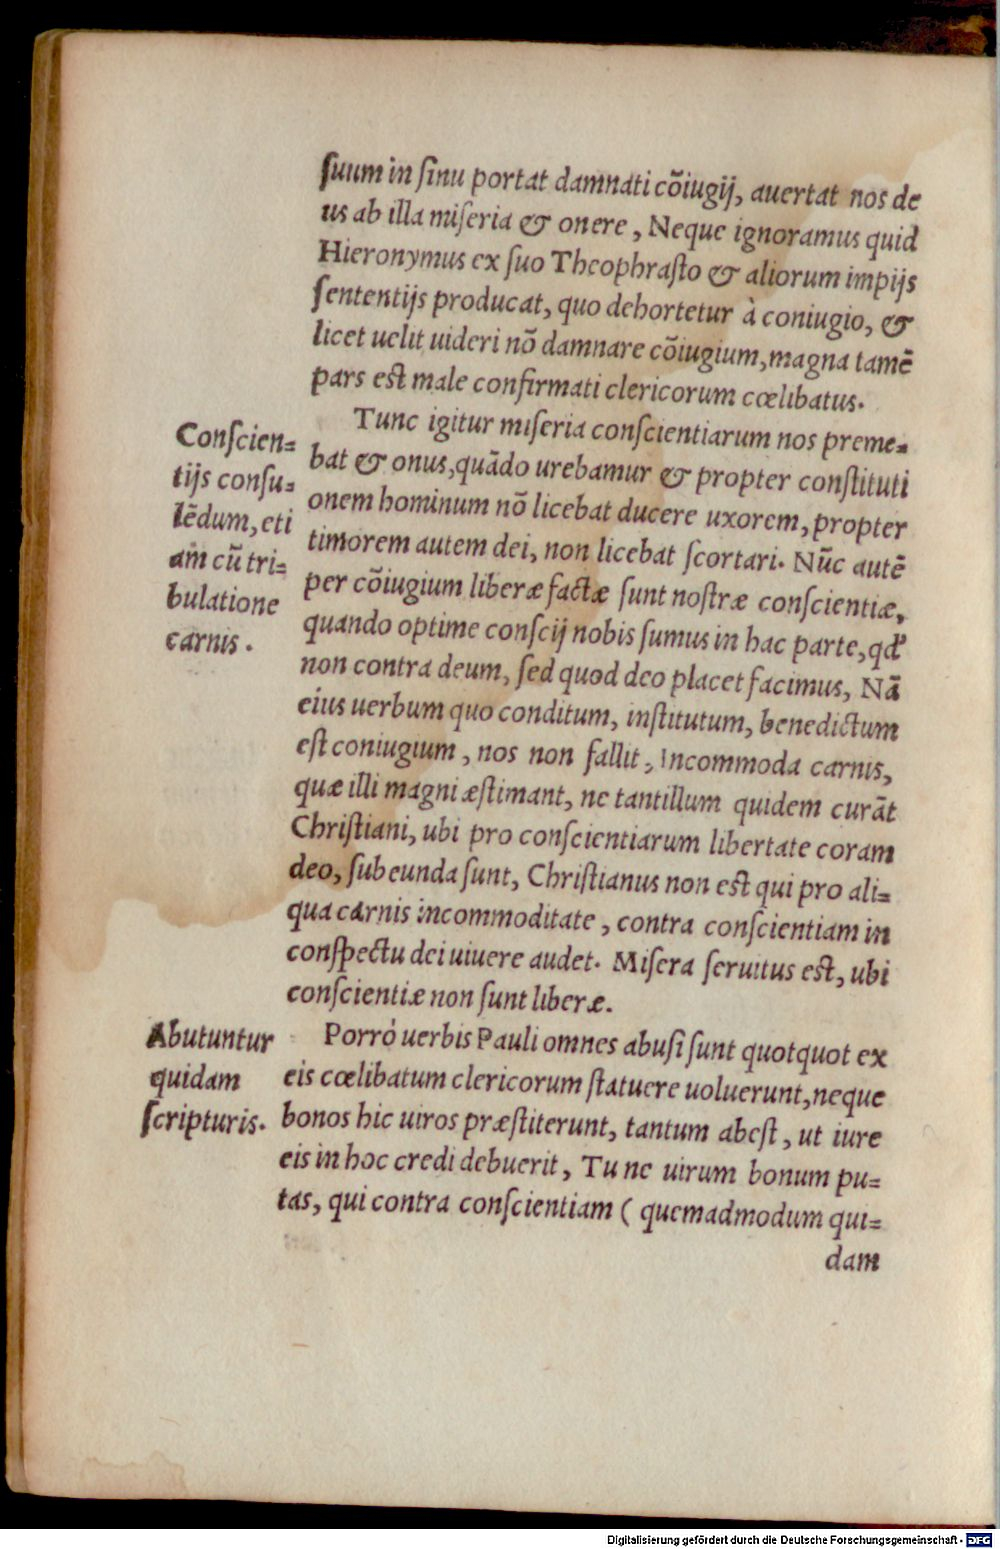 ſuum in ſinu portat damnati cõiugij, auertat nos de
us ab illa miſeria & onere, Neque ignoramus quid
Hieronymus ex ſuo Theophraſto & aliorum impijs
ſententijs producat, quo dehortetur à coniugio, &
licet uelit uideri nõ damnare cõiugium, magna tamẽ
pars eſt male confirmati clericorum cœlibatus.
Tunc igitur miſeria conſcientiarum nos preme=
bat & onus, quãdo urebamur & propter conſtituti
onem hominum nõ licebat ducere uxorem, propter
timorem autem dei, non licebat ſcortari. Nũc autẽ
per cõiugium liberæ factæ ſunt noſtræ conſcientiæ,
quando optime conſcij nobis ſumus in hac parte, qđ
non contra deum, ſed quod deo placet facimus, Nã
eius uerbum quo conditum, inſtitutum, benedictum
eſt coniugium, nos non fallit, Incommoda carnis,
quæ illi magni æſtimant, ne tantillum quidem curãt
Chriſtiani, ubi pro conſcientiarum libertate coram
deo, ſubeunda ſunt, Chriſtianus non eſt qui pro ali=
qua carnis incommoditate, contra conſcientiam in
conſpectu dei uiuere audet. Miſera ſeruitus eſt, ubi
conſcientiæ non ſunt liberæ.
Conſcien=
tijs conſu=
lẽdum, eti
am cũ tri=
bulatione
carnis.
Porrò uerbis Pauli omnes abuſi ſunt quotquot ex
eis cœlibatum clericorum ſtatuere uoluerunt, neque
bonos hic uiros præſtiterunt, tantum abeſt, ut iure
eis in hoc credi debuerit, Tu ne uirum bonum pu=
tas, qui contra conſcientiam ( quemadmodum qui=
dam
Abutuntur
quidam
ſcripturis.
Digitalisierung gefördert durch die Deutsche Forschungsgemeinschaft - DFG